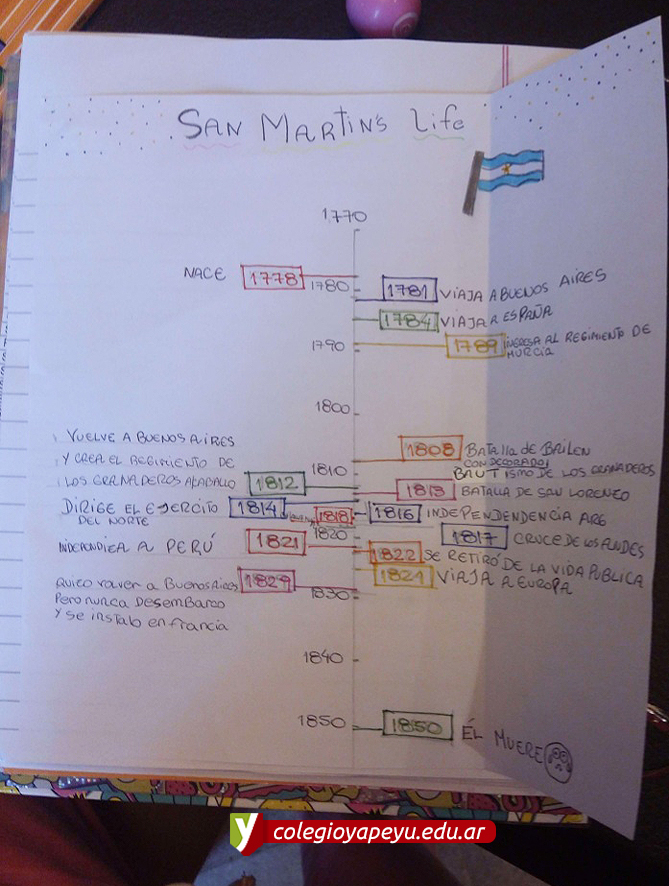 SAN MARTIN'S Life
1770
NACE 1778
1780
1781 VIAJA A BUENOS AIRES
1784 VIAJA A ESPAÑA
1790
1789 INGRESA AL REGIMIENTO DE
MURCIA
1800
1808 BATALLA DE BAILEN
CONDECORADO
VUELVE A BUENOS AIRES
Y CREA EL REGIMIENTO DE
LOS GRANADEROS ACABALLO 1812
1810
BAUTISMO DE LOS GRANADEROS
1813 BATALLA DE SAN LORENZO
DIRIGE EL EJERCITO 1814
DEL NORTE
1818
1816 INDEPENDENCIA ARG
1820
1817 CRUCE DE LOS ANDES
INDEPENDIZA A PERÚ 1821
1822 SE RETIRÓ DE LA VIDA PUBLICA
1824 VIAJA A EUROPA
QUISO VOLVER A BUENOS AIRES 1829
PERO NUNCA DESEMBARCO
Y SE INSTALO EN FRANCIA
1830
1840
1850
1850 ÉL MUERE
y colegioyapeyu.edu.ar